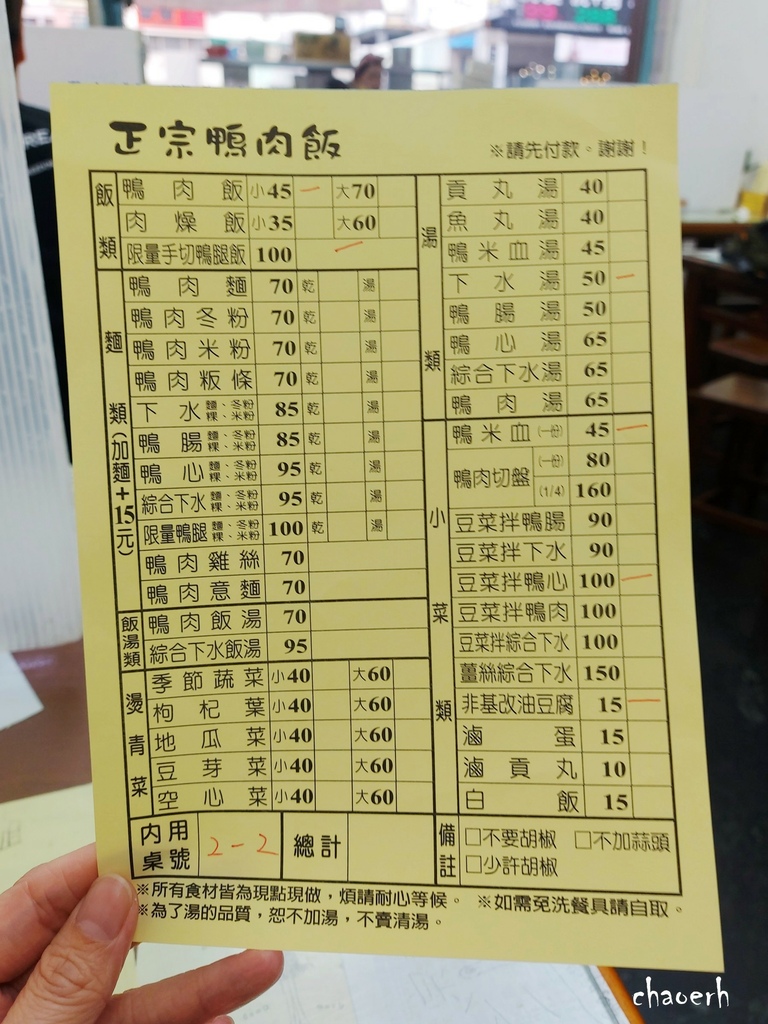 正宗鴨肉飯
※請先付款。謝謝!
飯類
鴨肉飯 小45 一 大70
肉燥飯 小35 大60
限量手切鴨腿飯 100 一
麵類(加麵+15元)
鴨肉麵 70 乾 湯
鴨肉冬粉 70 乾 湯
鴨肉米粉 70 乾 湯
鴨肉粄條 70 乾 湯
下水 麵、冬粉 粿、米粉 85 乾 湯
鴨腸 麵、冬粉 粿、米粉 85 乾 湯
鴨心 麵、冬粉 粿、米粉 95 乾 湯
綜合下水 麵、冬粉 粿、米粉 95 乾 湯
限量鴨腿 麵、冬粉 粿、米粉 100 乾 湯
鴨肉雞絲 70
鴨肉意麵 70
飯湯類
鴨肉飯湯 70
綜合下水飯湯 95
燙青菜
季節蔬菜 小40 大60
枸杞葉 小40 大60
地瓜菜 小40 大60
豆芽菜 小40 大60
空心菜 小40 大60
內用桌號 2-2 總計
湯類
貢丸湯 40
魚丸湯 40
鴨米血湯 45
下水湯 50 一
鴨腸湯 50
鴨心湯 65
綜合下水湯 65
鴨肉湯 65
小菜類
鴨米血(一份) 45 一
鴨肉切盤 (一份) 80
(1/4) 160
豆菜拌鴨腸 90
豆菜拌下水 90
豆菜拌鴨心 100 一
豆菜拌鴨肉 100
豆菜拌綜合下水 100
薑絲綜合下水 150
非基改油豆腐 15 一
滷蛋 15
滷貢丸 10
白飯 15
備註
□不要胡椒 □不加蒜頭
□少許胡椒
※所有食材皆為現點現做,煩請耐心等候。 ※如需免洗餐具請自取。
※為了湯的品質,恕不加湯,不賣清湯。
chaoerh